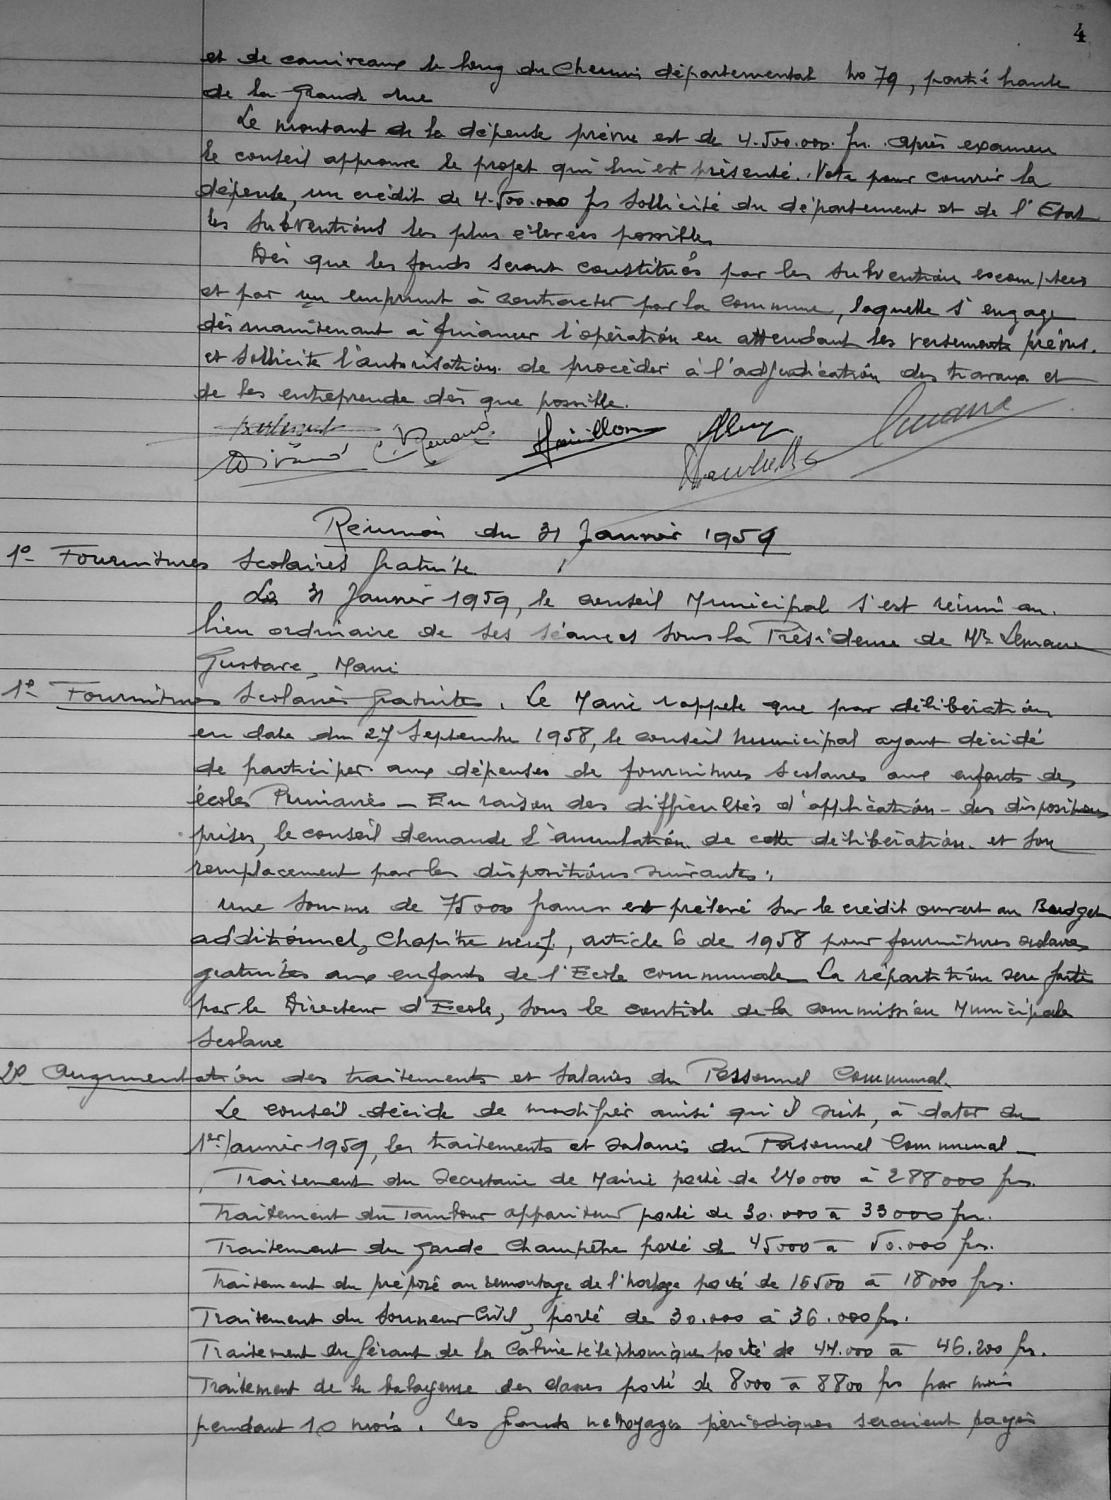 4
et de caniveaux le long du Chemin départemental No 79, partie haute
de la Grande Rue
Le montant de la dépense prévue est de 4.500.000. frs. après examen
le conseil approuve le projet qui lui est présenté. Vote pour couvrir la
dépense, un crédit de 4.500.000 frs sollicité du département et de l'Etat
les subventions les plus élevées possibles
Dès que les fonds seront constitués par les subventions escomptées
et par un emprunt à contracter par la Commune, laquelle s'engage
dès maintenant à financer l'opération en attendant les versements prévus.
et sollicite l'autorisation de procéder à l'adjudication des travaux et
de les entreprendre dès que possible.
Renaud
Réunion du 31 Janvier 1959
1o- Fournitures Scolaires Gratuites
Le 31 Janvier 1959, le conseil Municipal s'est réuni au
lieu ordinaire de ses séances sous la Présidence de Mr Lemaire
Gustave, Maire
1o- Fournitures Scolaires Gratuites. Le Maire rappele que par délibération
en date du 27 Septembre 1958, le conseil Municipal ayant décidé
de participer aux dépenses de fournitures scolaires aux enfants des
écoles Primaires - En raison des difficultés d'application - des dispositions
prises, le conseil demande l'annulation de cette délibération et son
remplacement par les dispositions suivantes:
Une somme de 75000 francs est prélevé sur le crédit ouvert au Budget
additionnel, Chapitre neuf, article 6 de 1958 pour fournitures scolaires
gratuites aux enfants de l'Ecole communale - La répartition sera faite
par le Directeur d'Ecole, sous le contrôle de la commission Municipale
Scolaire
2o Augmentation des traitements et salaires du Personnel Communal.
Le Conseil décide de modifier ainsi qu'il suit, à dater du
1er Janvier 1959, les traitements et salaires du Personnel Communal -
Traitement du Secretaire de Mairie porté de 240000 à 288000 frs.
Traitement du Tambour appariteur porté de 30.000 à 33000 frs.
Traitement du garde Champêtre porté de 45000 à 50.000 frs.
Traitement du préposé au remontage de l'horloge porté de 16500 à 18000 frs.
Traitement du sonneur Civil, porté de 30.000 à 36.000 frs.
Traitement du Gérant de la Cabine téléphonique porté de 44.000 à 46.200 frs.
Traitement de la balayeuse des classes porté de 8000 à 8800 frs par mois
pendant 10 mois. Les grands nettoyages périodiques seraient payés